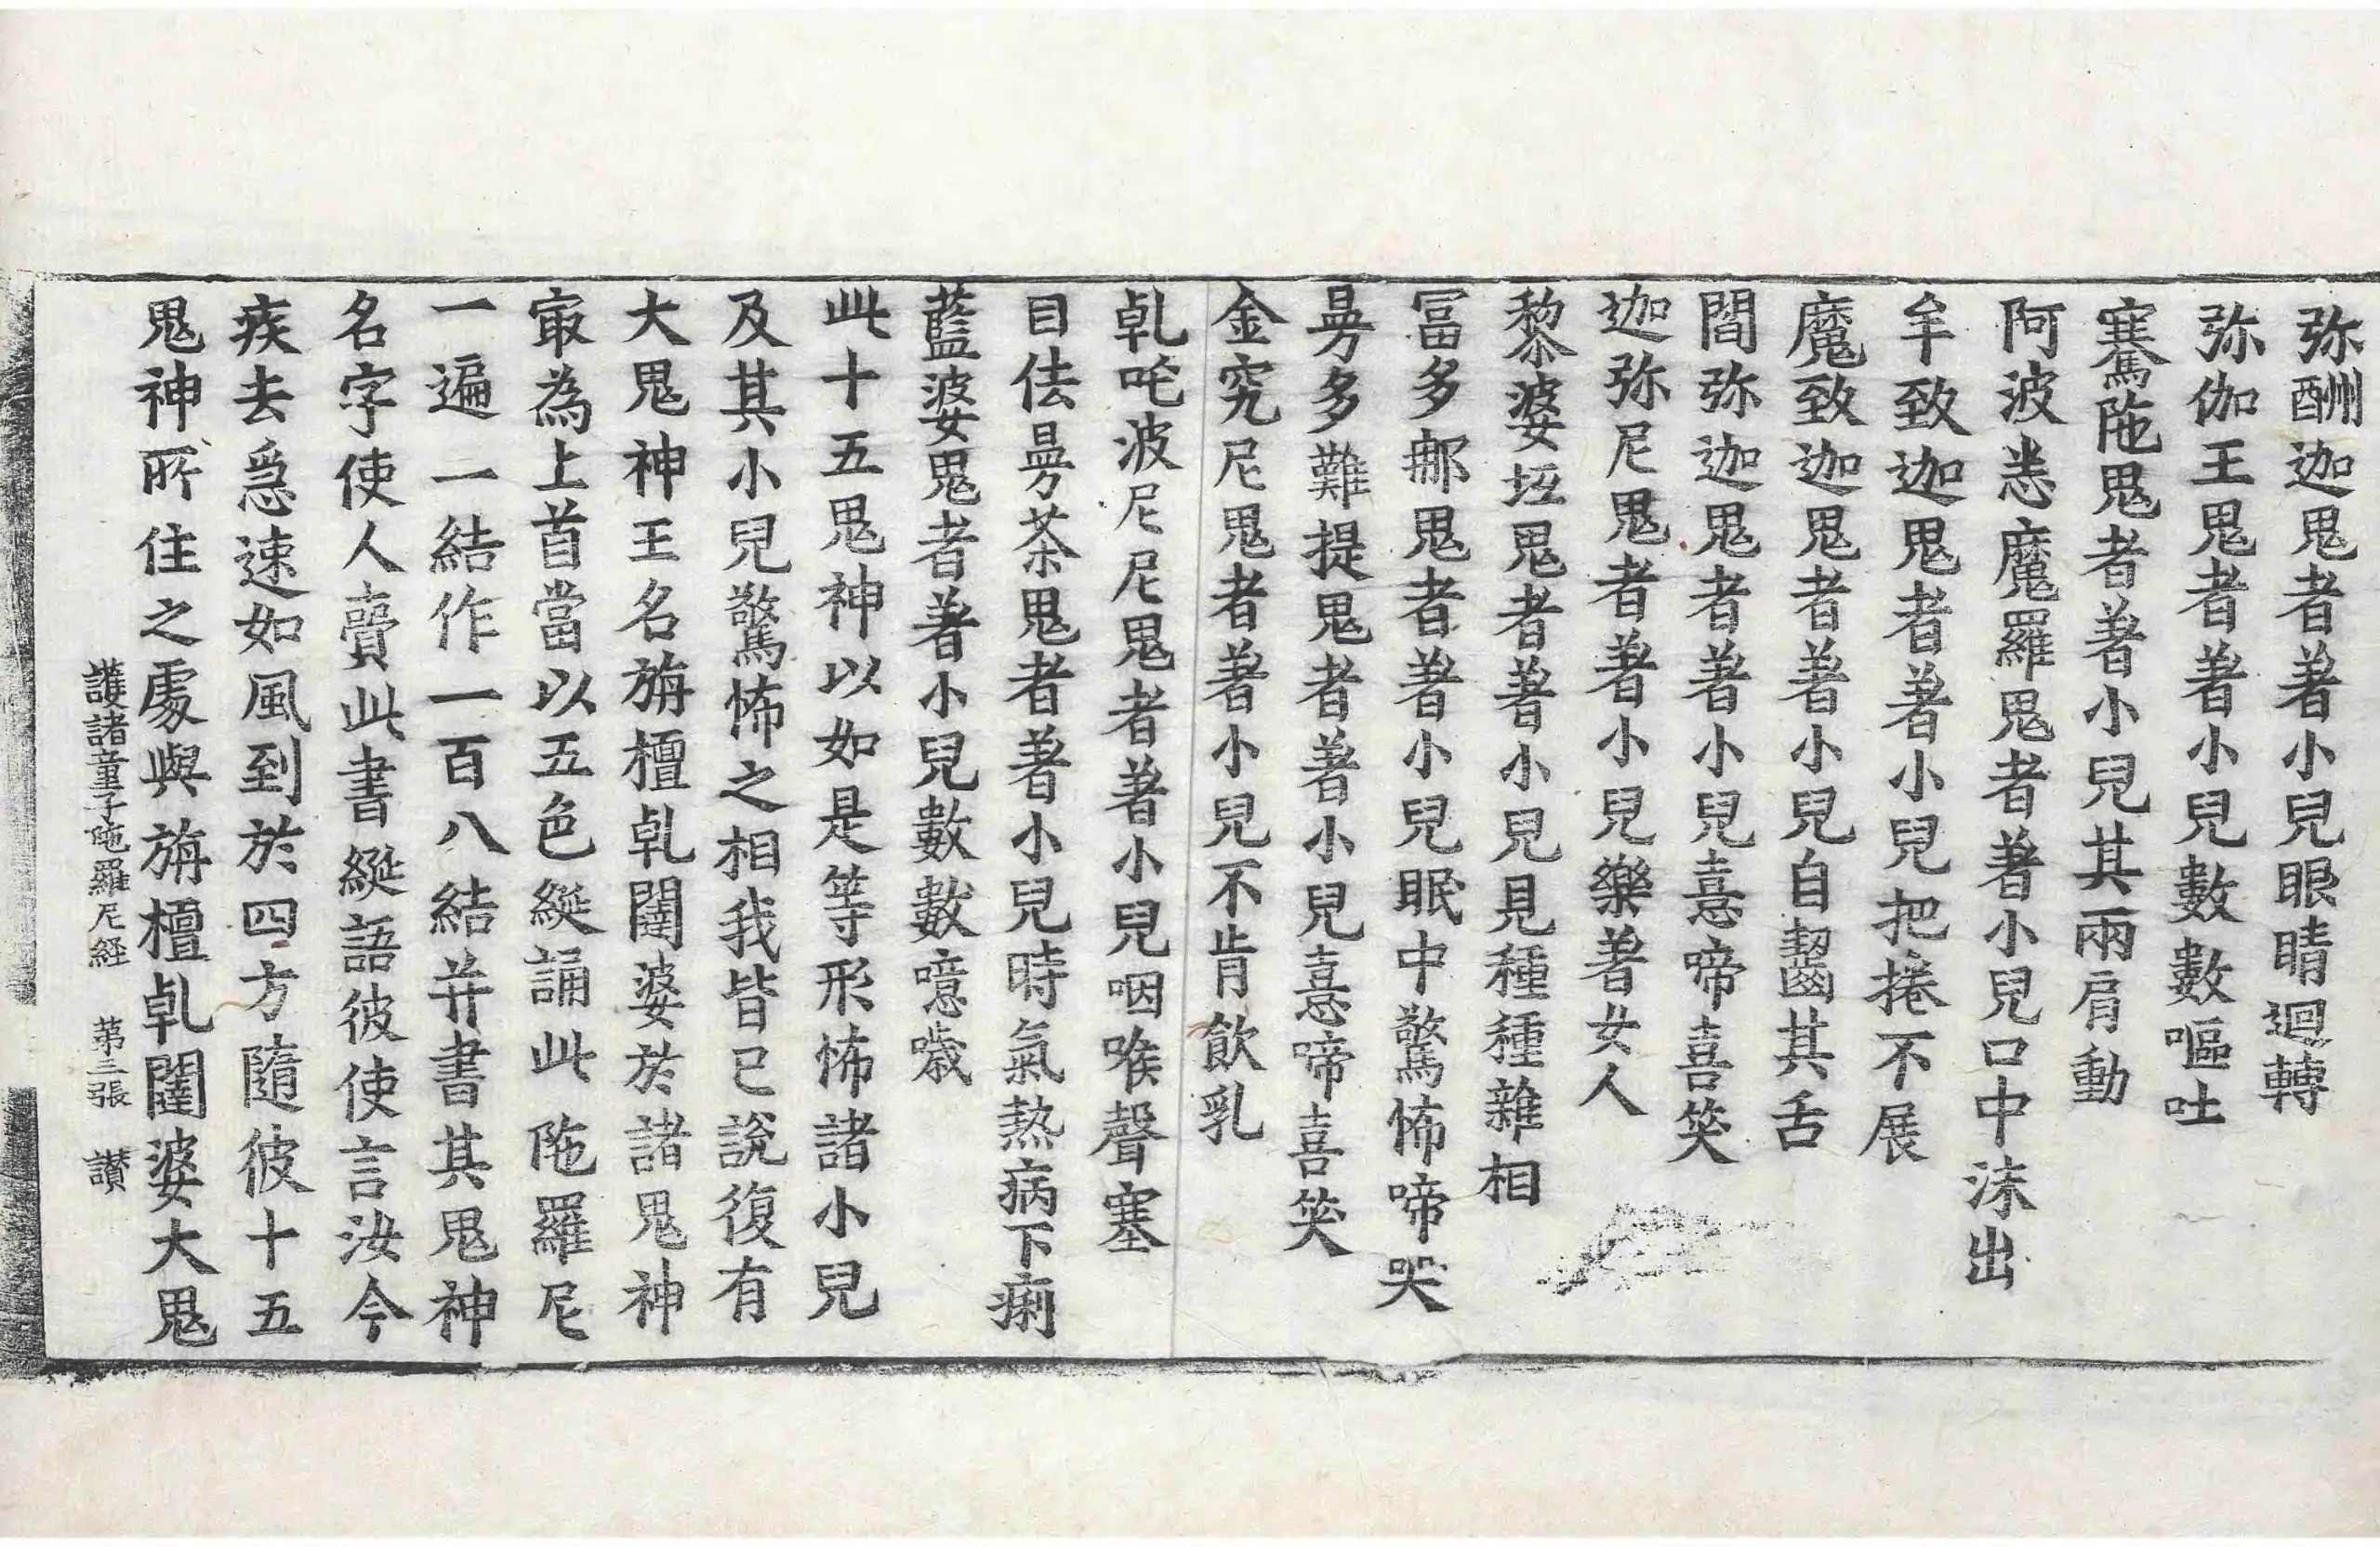 弥酬迦鬼者著小兒眼睛迴轉
弥伽王鬼者著小兒數數嘔吐
騫陁鬼者著小兒其兩肩動
阿波悉魔羅鬼者著小兒口中沫出
牟致迦鬼者著小兒把捲不展
魔致迦鬼者著小兒自齧其舌
閻弥迦鬼者著小兒憙啼喜笑
迦弥尼鬼者著小兒樂著女人
黎婆坻鬼者著小兒見種種雜相
冨多那鬼者著小兒眠中驚怖啼哭
曼多難提鬼者著小兒憙啼喜笑
金究尼鬼者著小兒不肯飲乳
乹吒波尼尼鬼者著小兒咽喉聲塞
目佉曼荼鬼者著小兒時氣熱病下痢
藍婆鬼者著小兒數數噫噦
此十五鬼神以如是等形怖諸小兒
及其小兒驚怖之相我皆已說復有
大鬼神王名旃檀乹闥婆於諸鬼神
㝡為上首當以五色綖誦此陁羅尼
一遍一結作一百八結并書其鬼神
名字使人賷此書綖語彼使言汝今
疾去急速如風到於四方隨彼十五
鬼神所住之處與旃檀乹闥婆大鬼
護諸童子陁羅尼経 第三張 讃